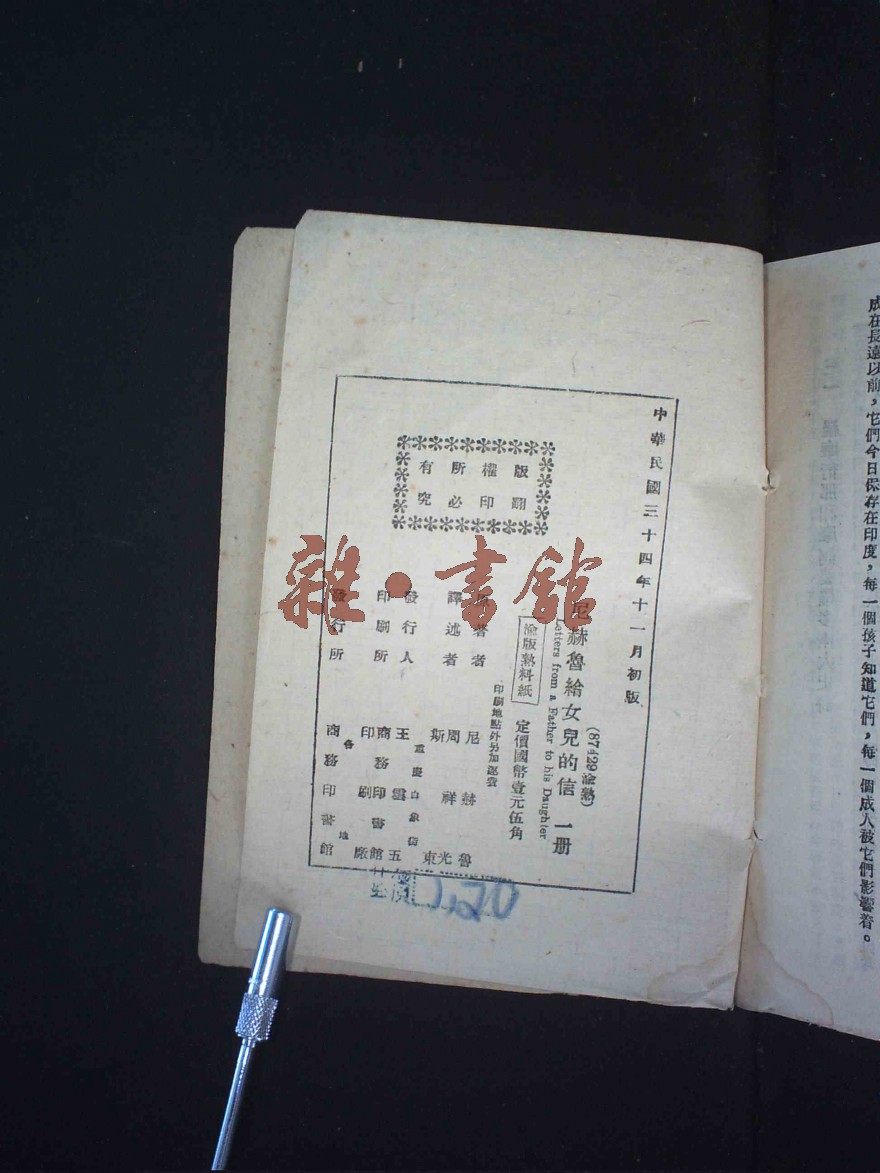 中華民國三十四年十一月初版
(87429渝熟)
尼赫魯給女兒的信 一册
Letters from a Father to his Daughter
渝版熟料紙 定價國幣壹元伍角
印刷地點外另加運費
原著者 尼赫魯
譯述者 周祥光 斯東
發行人 王雲五
重慶白象街
印刷所 商務印書館 印刷廠
發行所 各地 商務印書館
版權所有
翻印必究
雜·書館
1.20
成在長遠以前，它們今日保存在印度，每一個孩子知道它們，每一個成人被它們影響着。